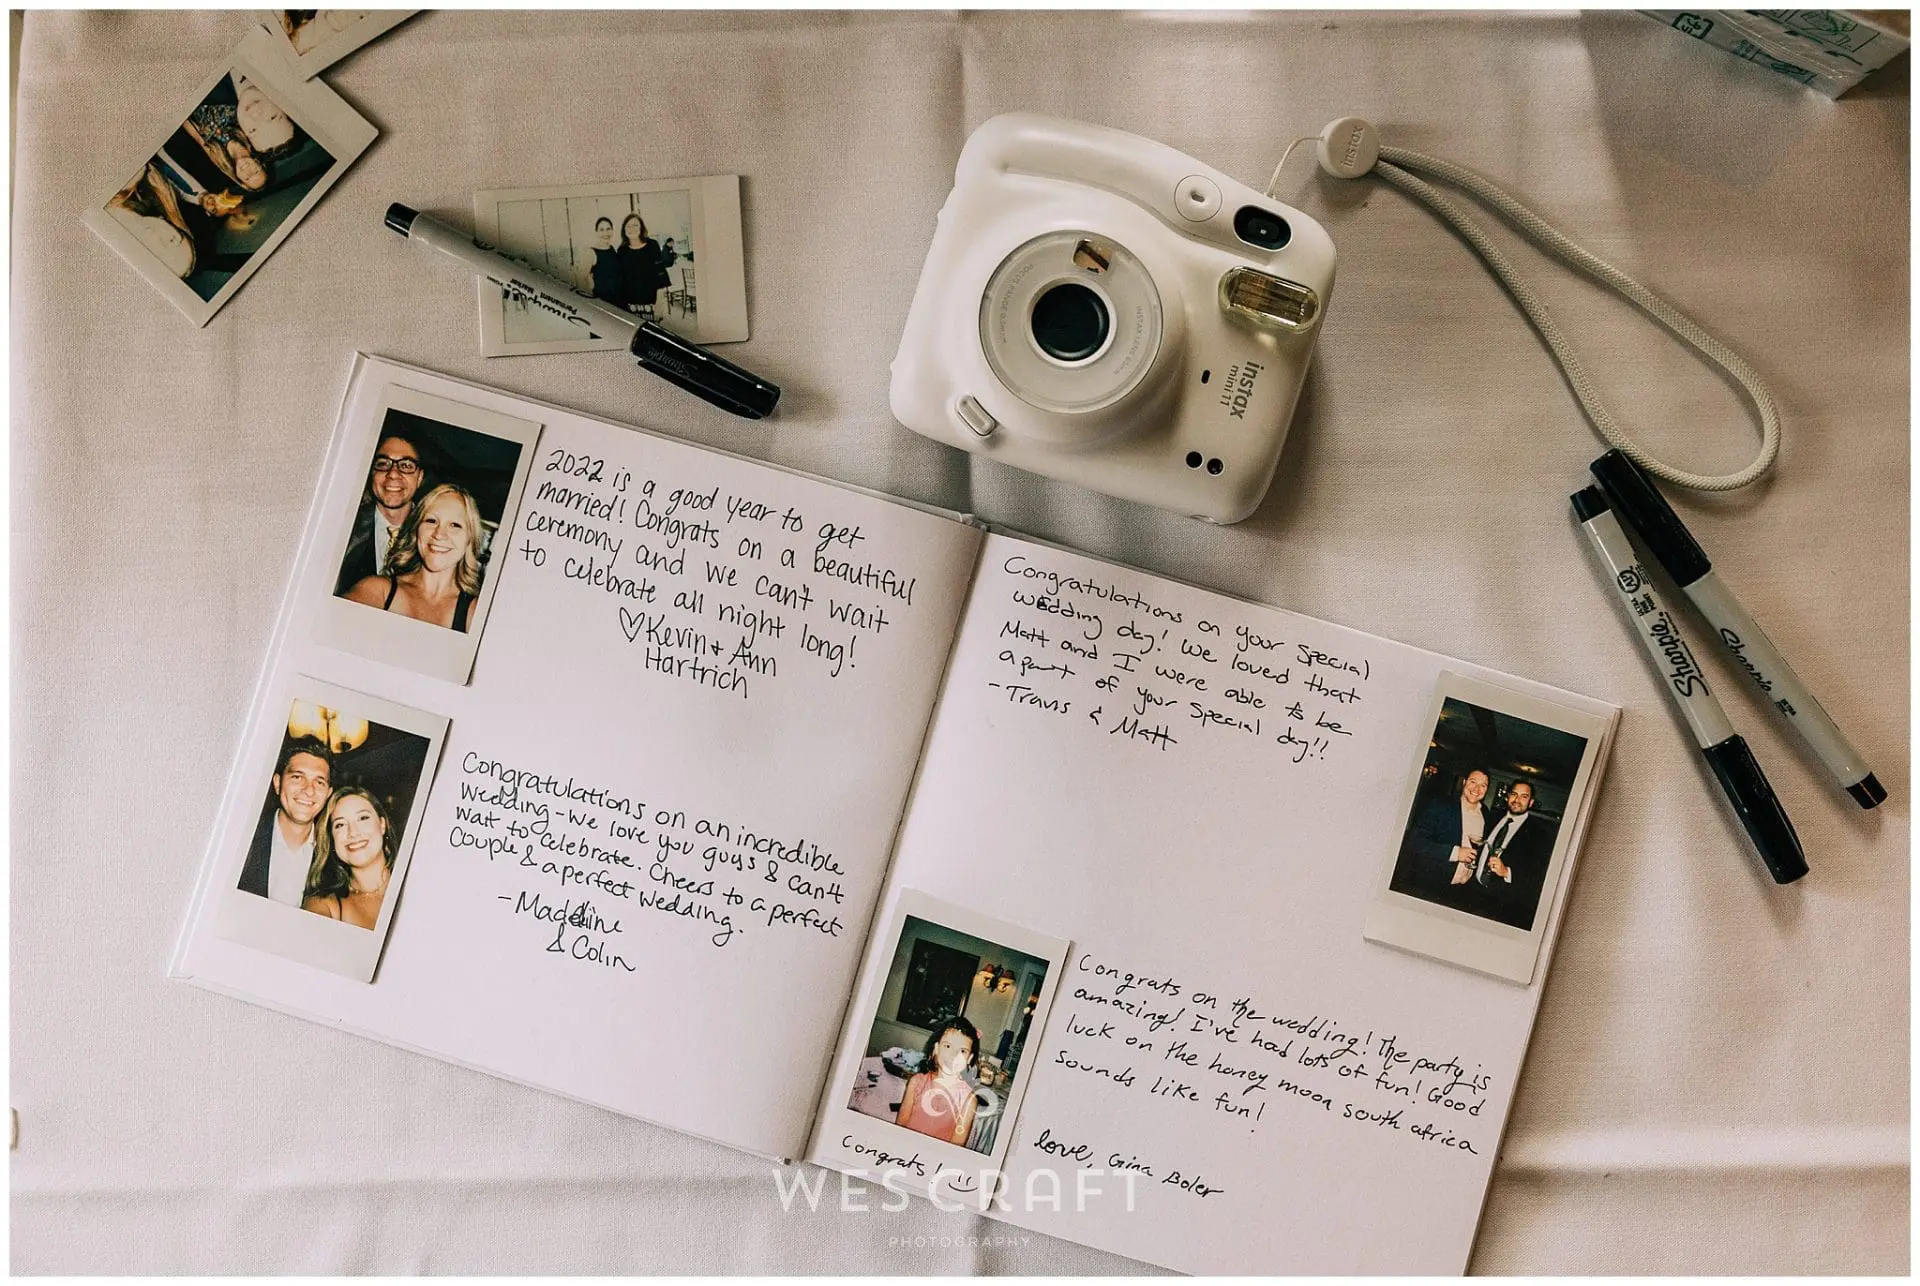 INSTAX
instax
mini 11
FOCUS RANGE 0.3m~∞
INSTAX LENS 60mm
Sharpie
Permanent Marker
Sharpie
Sharpie
Sharpie
2022 is a good year to get
married! Congrats on a beautiful
ceremony and we can't wait
to celebrate all night long!
♡Kevin + Ann
Hartrich
Congratulations on an incredible
Wedding - We love you guys & can't
wait to celebrate. Cheers to a perfect
couple & a perfect wedding.
- Madeline
& Colin
Congratulations on your special
wedding day! We loved that
Matt and I were able to be
a part of your special day!!
- Travis & Matt
Congrats on the wedding! The party is
amazing! I've had lots of fun! Good
luck on the honey moon south africa
sounds like fun!
love, Gina Boler
Congrats!
WES CRAFT
PHOTOGRAPHY